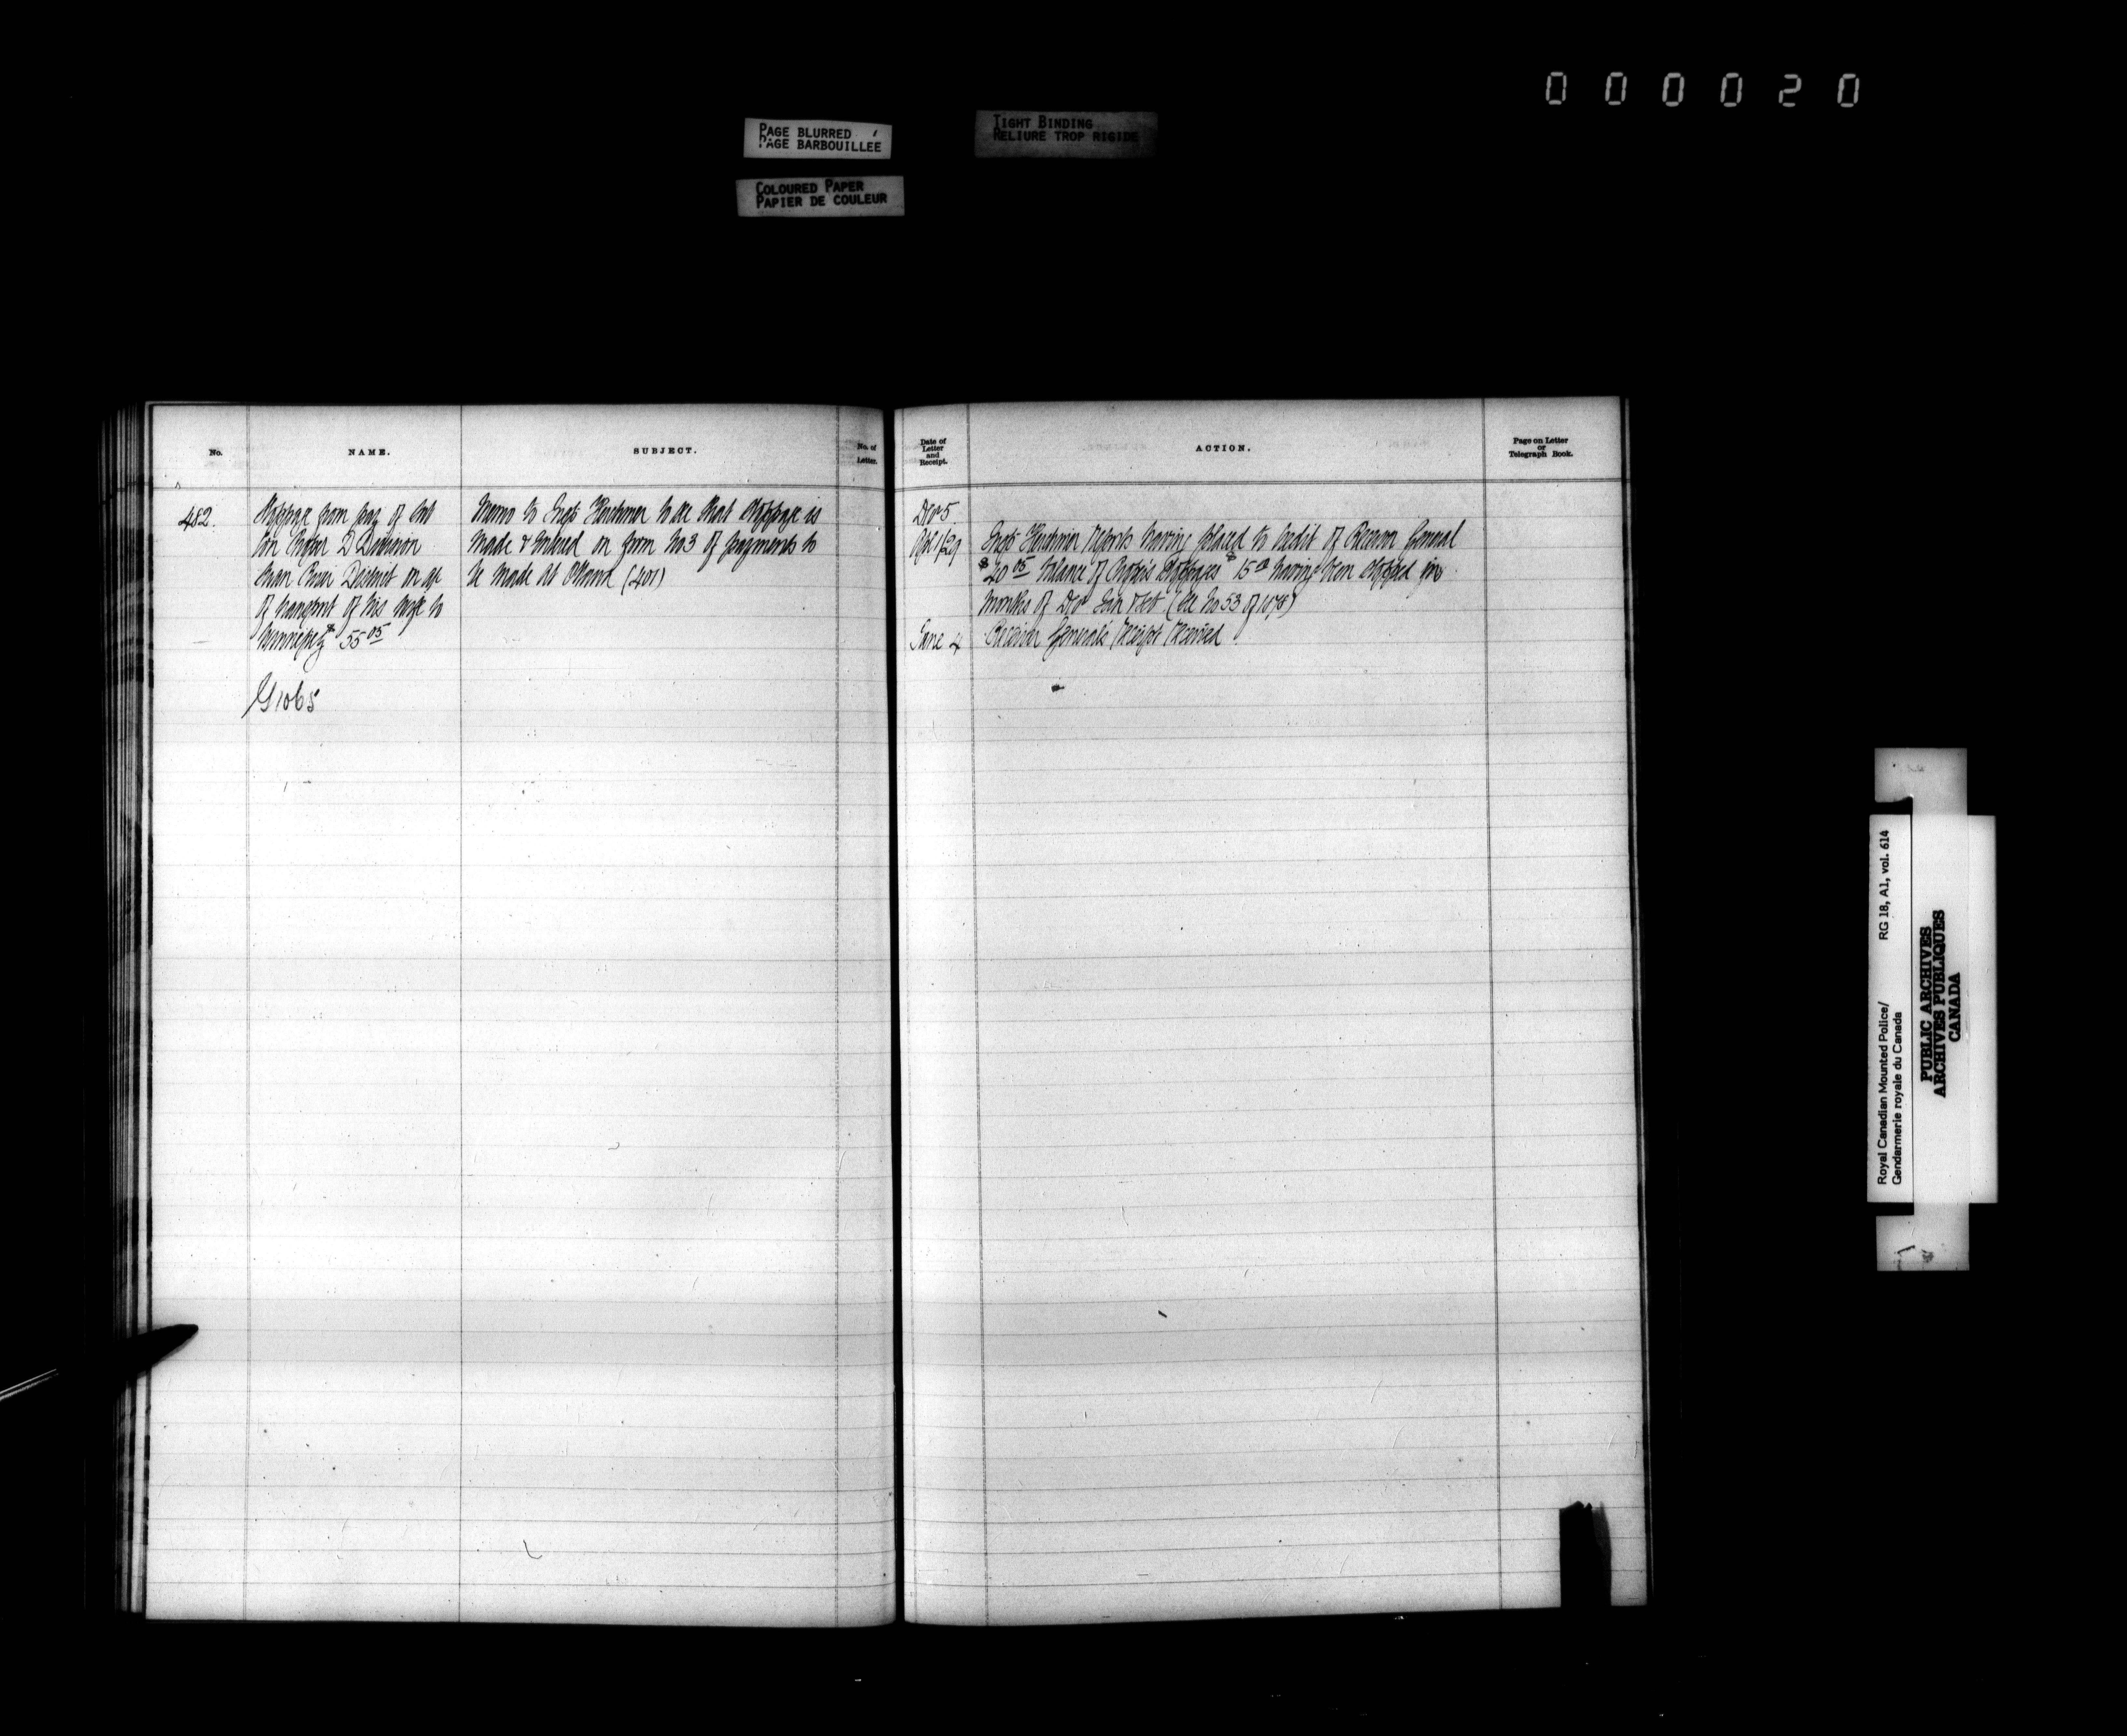 000020
PAGE BLURRED
PAGE BARBOUILLEE
TIGHT BINDING
RELIURE TROP RIGIDE
COLOURED PAPER
PAPIER DE COULEUR
No.
NAME.
SUBJECT.
No. of
Letter.
Date of
Letter
and
Receipt.
ACTION.
Page on Letter
or
Telegraph Book.
482.
Stoppage from pay of Sub
Con D Division
Swan River District on a/c
of transport of his wife to
Winnipeg $55 05
G1065
Memo to Insp Herchmer to see that stoppage is
made & entered on form No 3 of payments to
be made at Ottawa (401)
Decr 5.
Apl 1/29
Insp Herchmer reports having placed to credit of Receiver General
$40 05 balance of stoppages $15 00 having been stopped for
months of Decr Jan & Feb (See No 53 of 1878)
June 4
Receiver General's receipt received
Royal Canadian Mounted Police/
Gendarmerie royale du Canada
RG 18, A1, vol. 614
PUBLIC ARCHIVES
ARCHIVES PUBLIQUES
CANADA